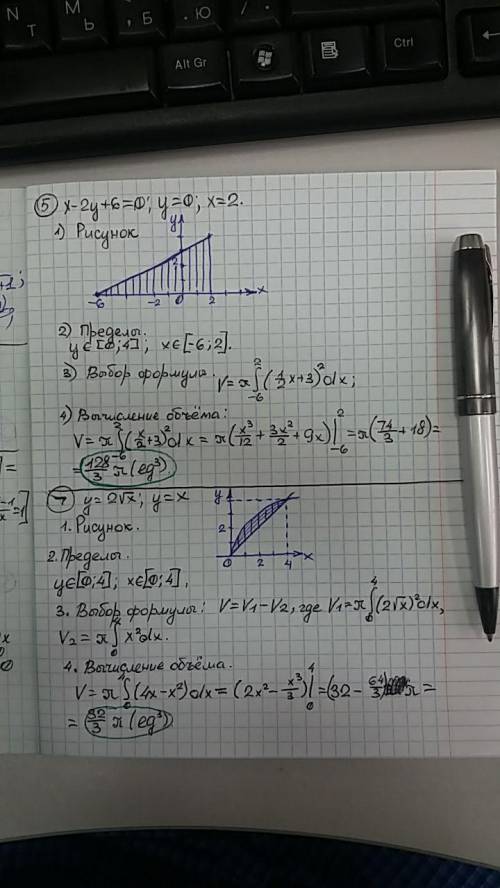 N
Т
М
Ь
, Б
. Ю
/ .
Alt Gr
Ctrl
⑤ x-2y+6=0; y=0; x=2.
1) Рисунок
y
2
-6 -2 0 2 x
2) Пределы.
y∈[0;4]; x∈[-6;2].
3) Выбор формулы. V=π∫₋₆²(1/2x+3)²dx;
4) Вычисление объёма:
V=π∫₋₆²(x/2+3)²dx=π(x³/12+3x²/2+9x)|₋₆²=π(74/3+18)=
=128/3π(ед³)
⑦ y=2√x; y=x
1. Рисунок.
y
2
0 2 4 x
2. Пределы.
y∈[0;4]; x∈[0;4],
3. Выбор формулы: V=V₁-V₂, где V₁=π∫₀⁴(2√x)²dx,
V₂=π∫₀⁴x²dx.
4. Вычисление объёма.
V=π∫₀⁴(4x-x²)dx=(2x²-x³/3)|₀⁴=(32-64/3)π=
=32/3π(ед³)